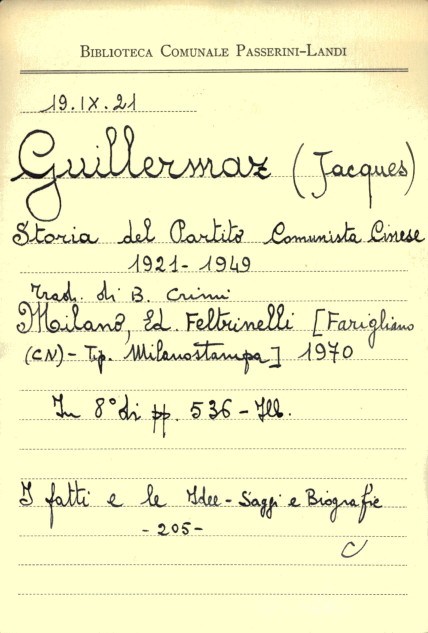 BIBLIOTECA COMUNALE PASSERINI-LANDI
19.IX.21
Guillermaz (Jacques)
Storia del Partito Comunista Cinese
1921-1949
Trad. di B. Crimi
Milano, Ed. Feltrinelli [Farigliano
(CN) - Tip. Milanostampa] 1970
In 8° di pp. 536 - Ill.
I fatti e le Idee - Saggi e Biografie
- 205 -
C